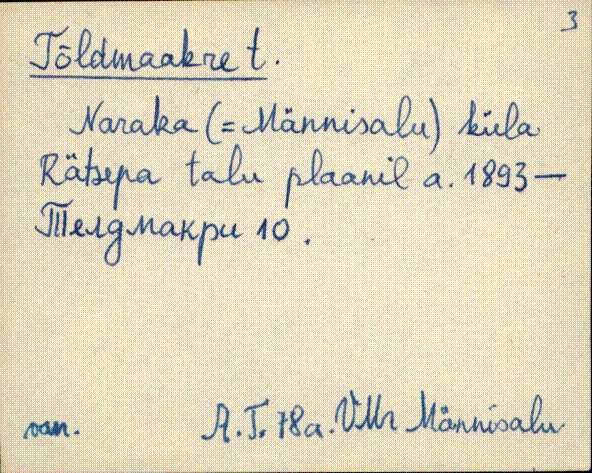 3
Tõldmaakre t.
Naraka (= Männisalu) küla
Rätsepa talu plaanil a. 1893 —
Телдмакри 10.
van. A. T. 78a. VMr Männisalu